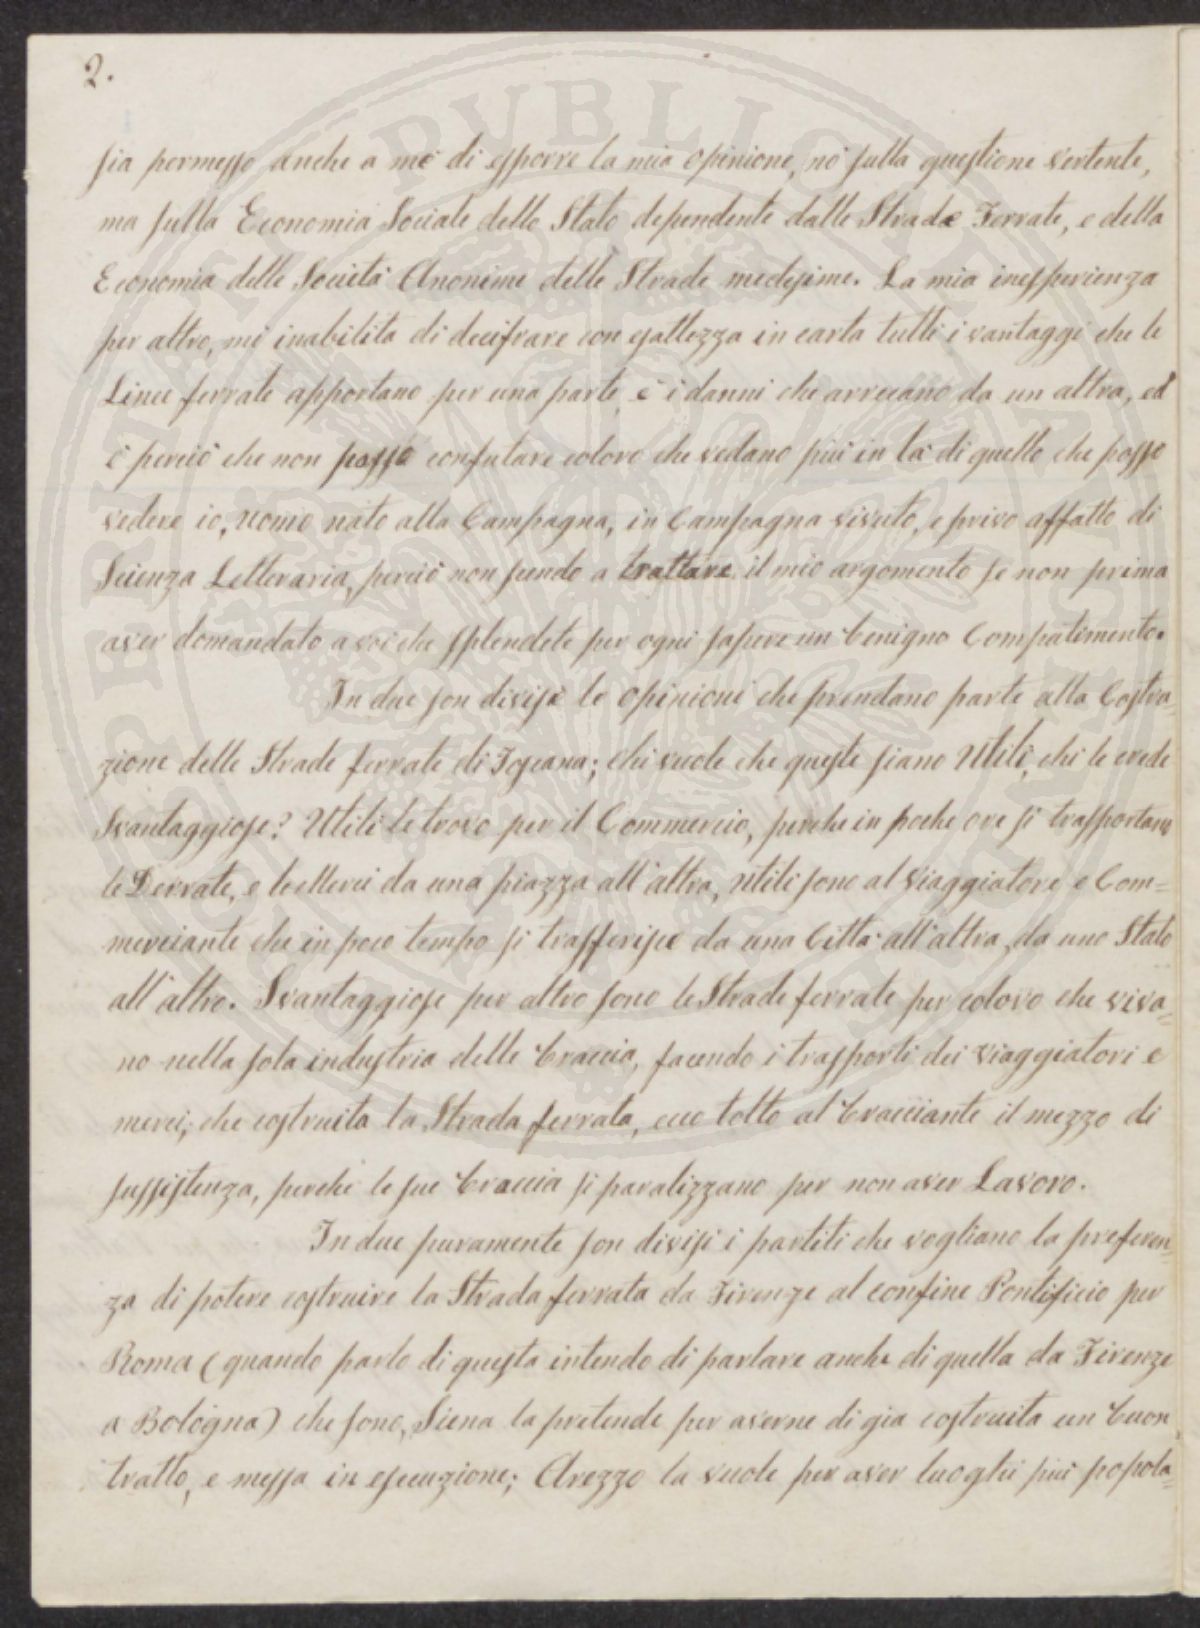 2.
sia permesso anche a me di esporre la mia opinione, nò sulla questione vertente,
ma sulla Economia Sociale dello Stato dependente dalle Strade Ferrate, e della
Economia delle Società Anonime delle Strade medesime. La mia inesperienza
per altro, mi inabilita di decifrare con esattezza in carta tutti i vantaggi che le
Linee ferrate apportano per una parte, e i danni che arrecano da un altra, ed
è perciò che non posso confutare coloro che vedano più in là di quello che posso
vedere io, uomo nato alla Campagna, in Campagna vissuto, e privo affatto di
Scienza Letteraria, perciò non scendo a trattare il mio argomento se non prima
aver domandato a voi che splendete per ogni sapere un benigno Compatimento.
In due son divise le opinioni che prendano parte alla Costru=
zione delle Strade ferrate di Toscana; chi vuole che queste siano Utili, chi le crede
Svantaggiose? Utili le trovo per il Commercio, perche in poche ore si trasportano
le Derrate, e le Merci da una piazza all'altra, utili sono al Viaggiatore e Com=
merciante che in poco tempo si trasferisce da una Città all'altra, da uno Stato
all'altro. Svantaggiose per altro sono le Strade ferrate per coloro che viva=
no nella sola industria delle braccia, facendo i trasporti dei Viaggiatori e
merci, che costruita la Strada ferrata, ecco tolto al bracciante il mezzo di
sussistenza, perchè le sue braccia si paralizzano per non aver Lavoro.
In due puramente son divisi i partiti che vogliano la preferen=
za di potere costruire la Strada ferrata da Firenze al confine Pontificio per
Roma (quando parlo di questa intendo di parlare anche di quella da Firenze
a Bologna) che sono, Siena la pretende per averne di gia costruita un buon
tratto, e messa in esecuzione; Arezzo la vuole per aver luoghi più popola=